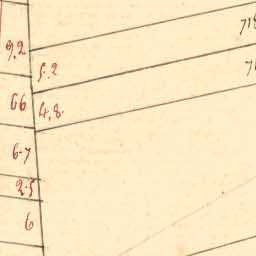 9.2
5.2
66
4.8.
6.7
2.5
6